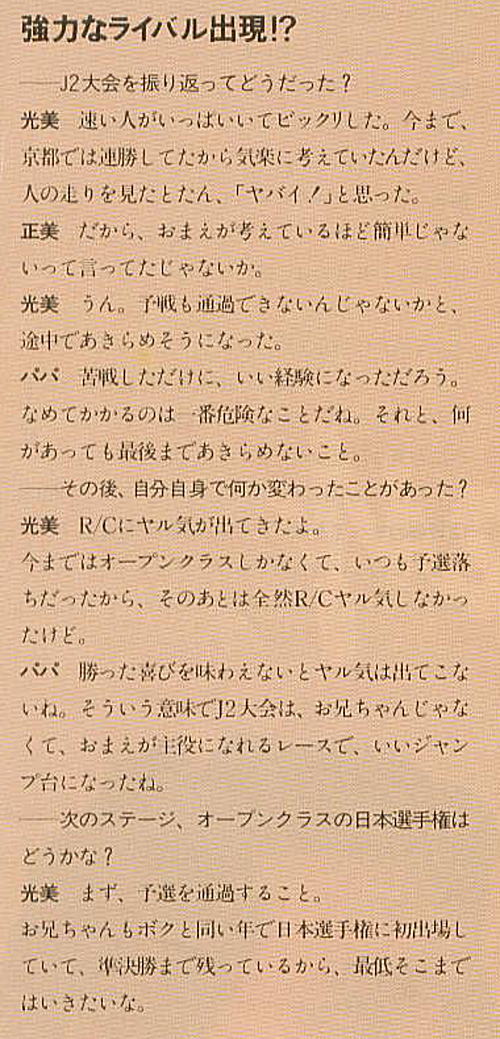 強力なライバル出現!?
――J2大会を振り返ってどうだった？
光美　速い人がいっぱいいてビックリした。今まで、
京都では連勝してたから気楽に考えていたんだけど、
人の走りを見たとたん、「ヤバイ！」と思った。
正美　だから、おまえが考えているほど簡単じゃな
いって言ってたじゃないか。
光美　うん。予戦も通過できないんじゃないかと、
途中であきらめそうになった。
パパ　苦戦しただけに、いい経験になっただろう。
なめてかかるのは一番危険なことだね。それと、何
があっても最後まであきらめないこと。
――その後、自分自身で何か変わったことがあった？
光美　R/Cにヤル気が出てきたよ。
今まではオープンクラスしかなくて、いつも予選落
ちだったから、そのあとは全然R/Cヤル気しなかっ
たけど。
パパ　勝った喜びを味わえないとヤル気は出てこな
いね。そういう意味でJ2大会は、お兄ちゃんじゃな
くて、おまえが主役になれるレースで、いいジャン
プ台になったね。
――次のステージ、オープンクラスの日本選手権は
どうかな？
光美　まず、予選を通過すること。
お兄ちゃんもボクと同い年で日本選手権に初出場し
ていて、準決勝まで残っているから、最低そこまで
はいきたいな。